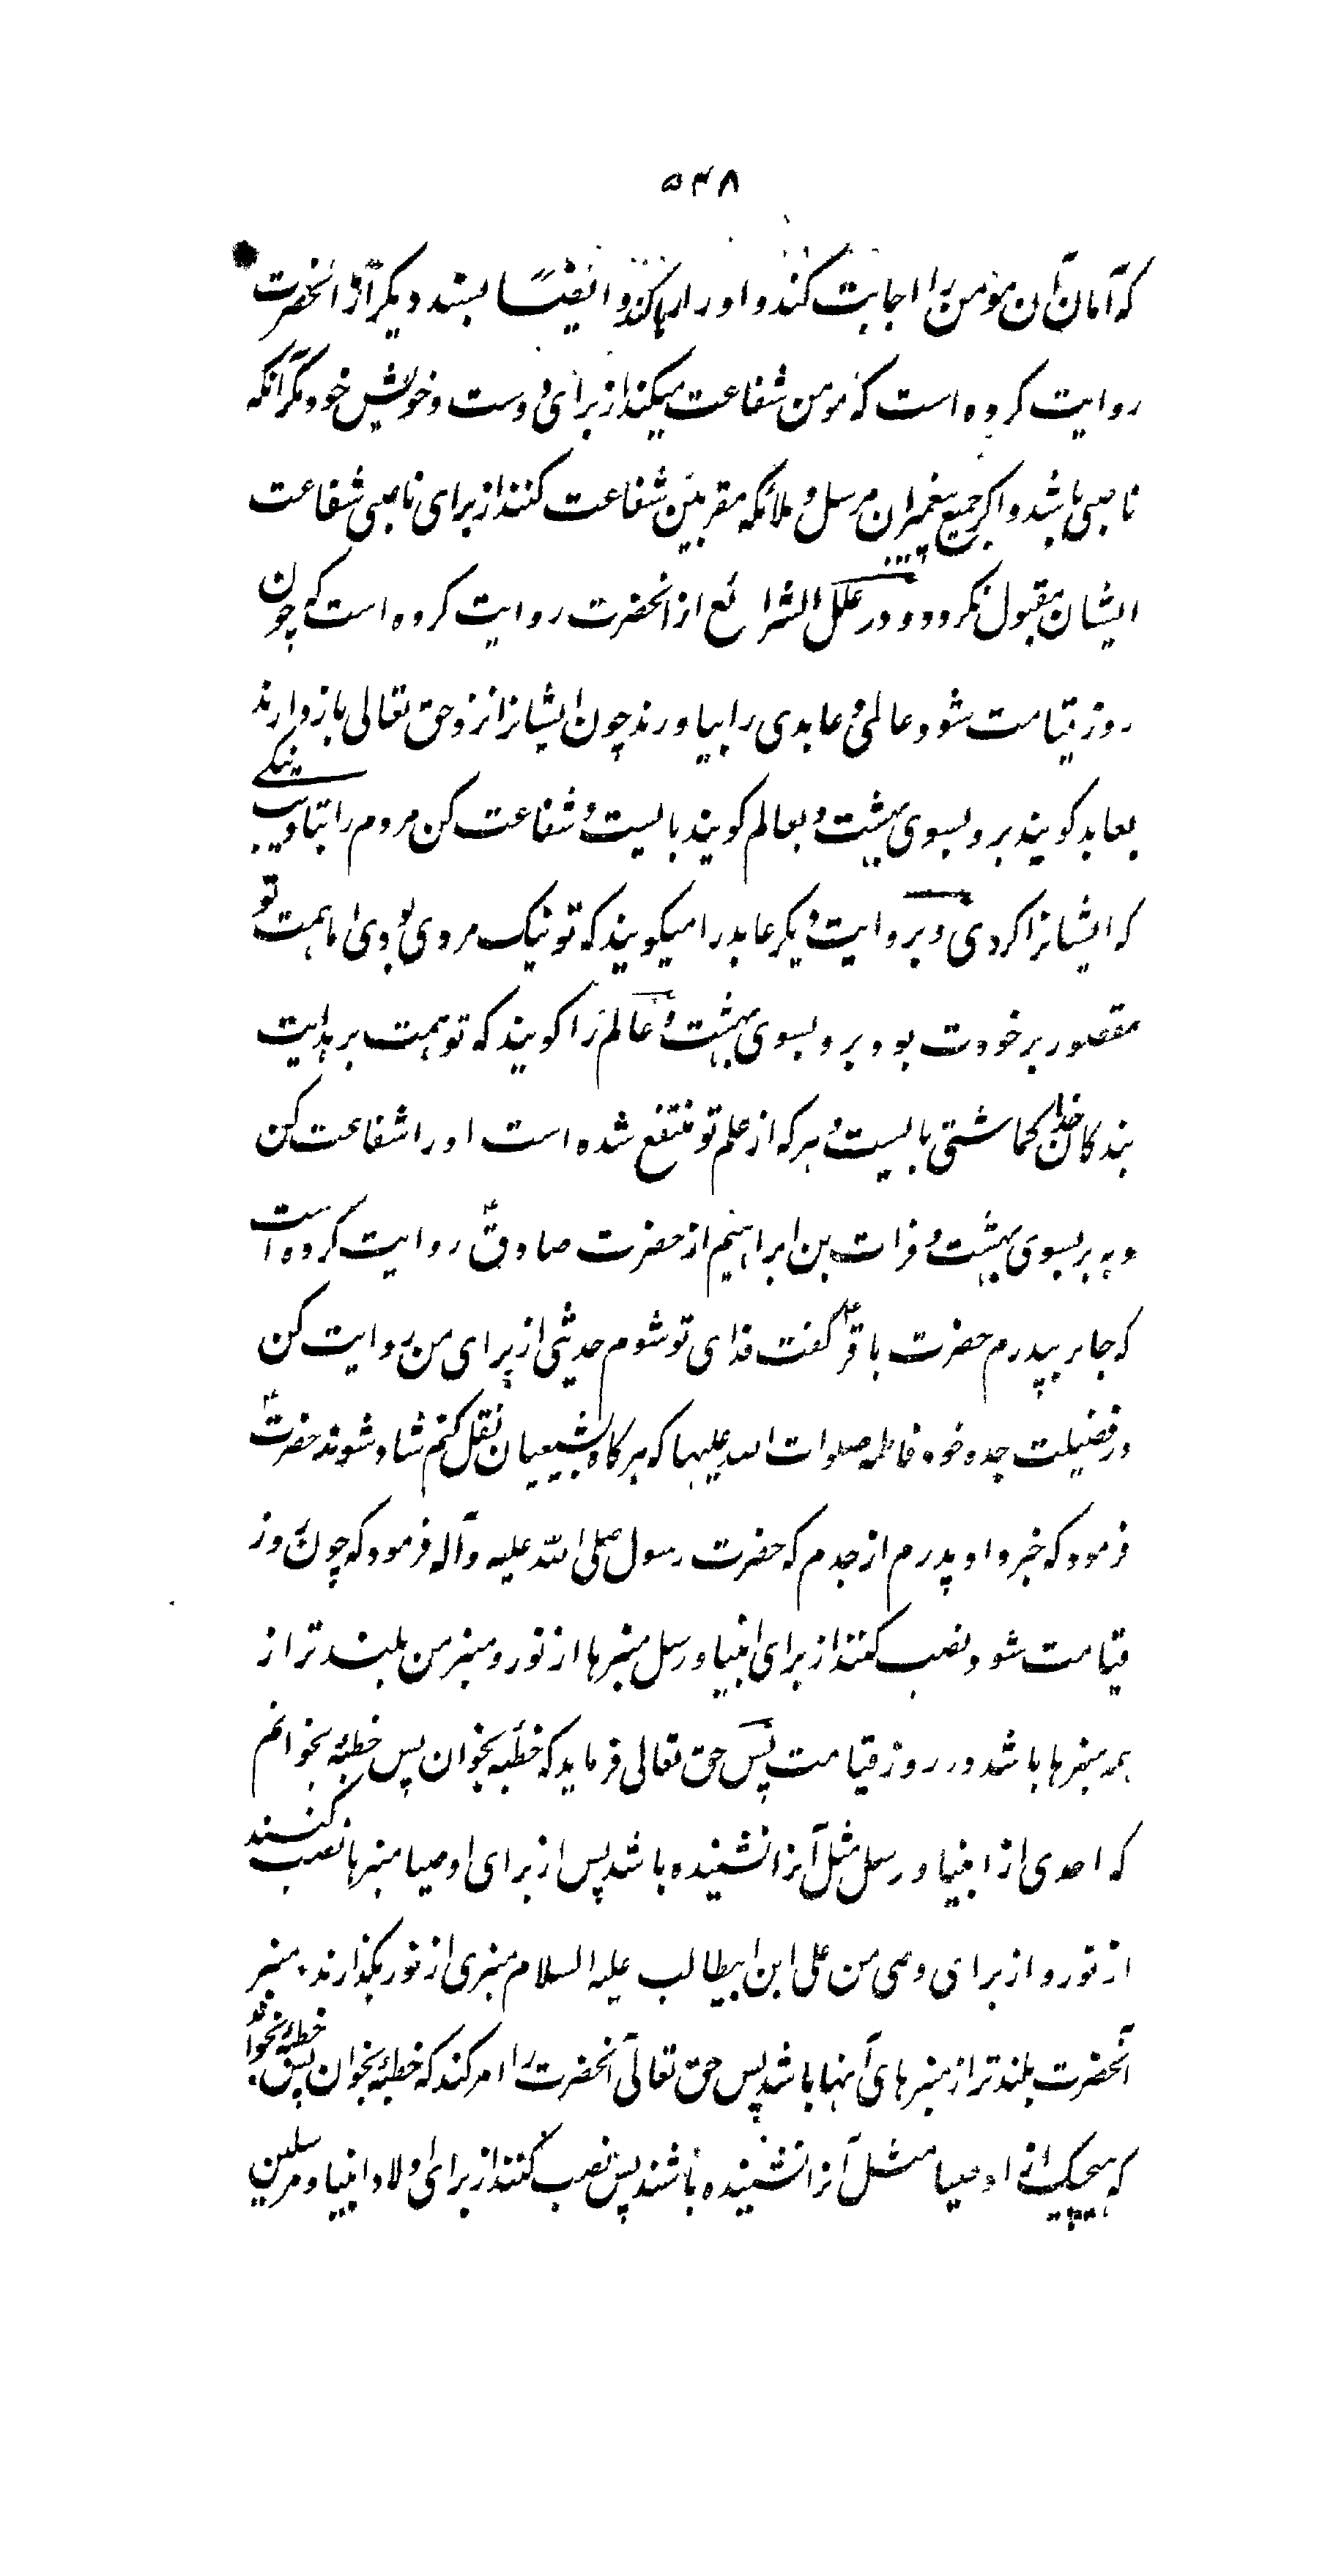 ۵۴۸
که امان آن مؤمن را اجابت کند و او را رها کند و ایضًا بسند دیگر از آنحضرت
روایت کرده است که مومن شفاعت میکند از برای دوست و خویش خود مگر آنکه
ناصبی باشد و اگر جمیع پیغمبران مرسل و ملائکه مقربین شفاعت کنند از برای ناصبی شفاعت
ایشان مقبول نگردد و در علل الشرائع از آنحضرت روایت کرده است که چون
روز قیامت شود عالمی و عابدی را بیاورند چون ایشانرا نزد حق تعالی بازدارند
بعابد کویند برو بسوی بهشت و بعالم کویند بایست و شفاعت کن مردم را بتادیب نیکی
که ایشانرا کردی و بروایت دیگر عابد را میکویند که تو نیک مردی بودی اما همت تو
مقصور بر خودت بود برو بسوی بهشت و عالم را کویند که تو همت بر هدایت
بندکان خدا کماشتی بایست و هر که از علم تو منتفع شده است او را شفاعت کن
و ببر بسوی بهشت و فرات بن ابراهیم از حضرت صادقؑ روایت کرده است
که جابر بپدرم حضرت باقرؑ گفت فدای تو شوم حدیثی از برای من روایت کن
در فضیلت جده خود فاطمه صلوات الله علیها که هرکاه بشیعیان نقل کنم شاد شوند حضرتؑ
فرمود که خبر داد پدرم از جدم که حضرت رسول صلی الله علیه وآله فرمود که چون روز
قیامت شود نصب کنند از برای انبیا و رسل منبرها از نور و منبر من بلندتر از
همه منبرها باشد در روز قیامت پس حق تعالی فرماید که خطبه بخوان پس خطبهٔ بخوانم
که احدی از انبیا و رسل مثل آنرا نشنیده باشد پس از برای اوصیا منبرها نصب کنند
از نور و از برای وصی من علی ابن ابیطالب علیه السلام منبری از نور بگذارند منبر
آنحضرت بلندتر از منبرهای آنها باشد پس حق تعالی آنحضرت را امر کند که خطبهٔ بخوان پس خطبهٔ بخواند
که هیچیک از اوصیا مثل آنرا نشنیده باشند پس نصب کنند از برای اولاد انبیا و مرسلین